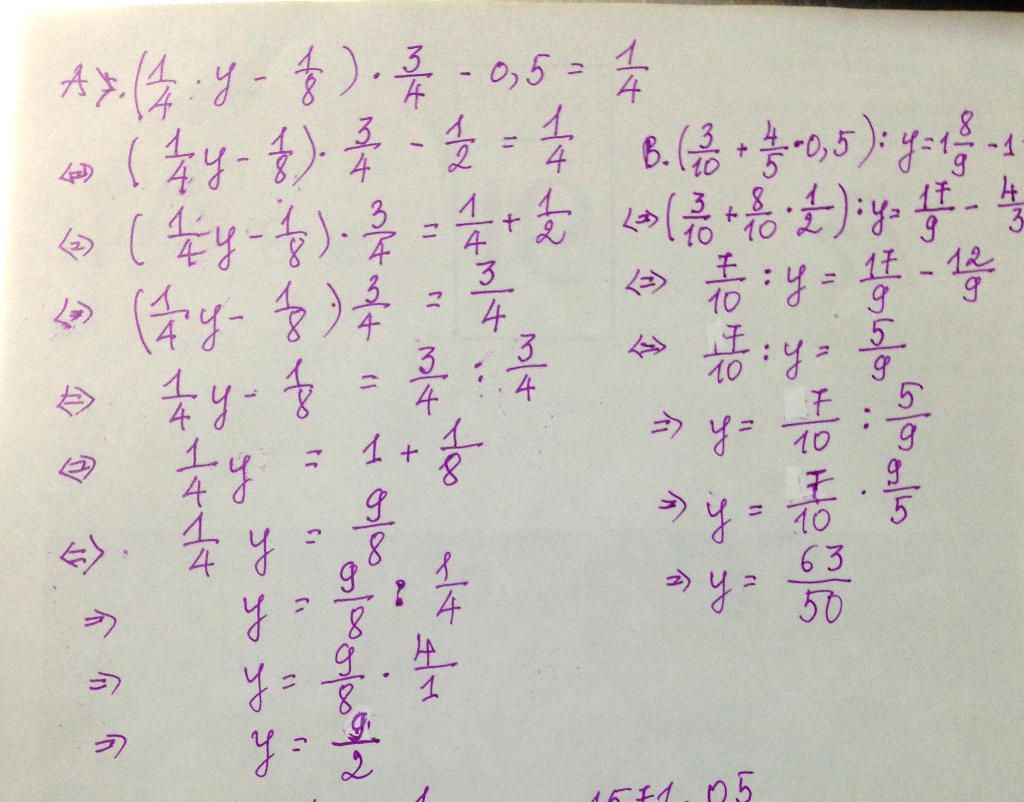 A). (1/4 · y - 1/8) · 3/4 - 0,5 = 1/4
<=> (1/4 y - 1/8) · 3/4 - 1/2 = 1/4
<=> (1/4 y - 1/8) · 3/4 = 1/4 + 1/2
<=> (1/4 y - 1/8) 3/4 = 3/4
<=> 1/4 y - 1/8 = 3/4 : 3/4
<=> 1/4 y = 1 + 1/8
<=> 1/4 y = 9/8
=> y = 9/8 : 1/4
=> y = 9/8 · 4/1
=> y = 9/2
B. (3/10 + 4/5 · 0,5) : y = 1 8/9 - 1
<=> (3/10 + 8/10 · 1/2) : y = 17/9 - 4/3
<=> 7/10 : y = 17/9 - 12/9
<=> 7/10 : y = 5/9
=> y = 7/10 : 5/9
=> y = 7/10 · 9/5
=> y = 63/50